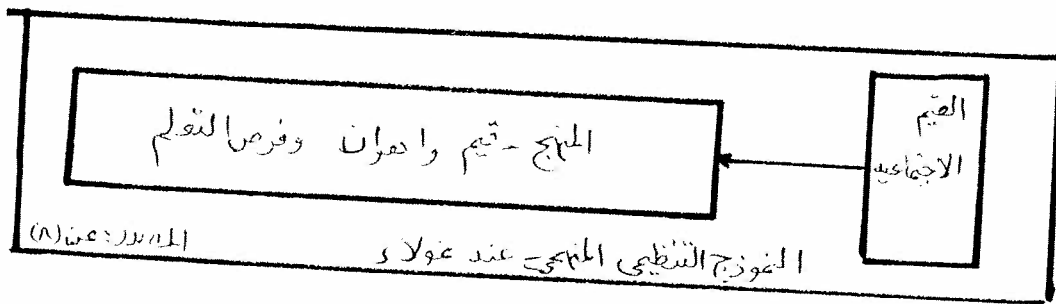 القيم
الاجتماعيه
المنهج - قيم واهداف وفرص التعلم
النموذج التنظيمي المنهجي عند
المصدر: عن (٨)